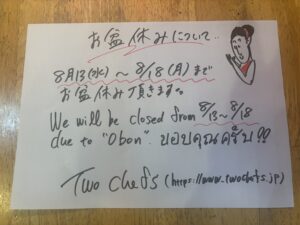 お盆休みについて..
8月13(水)〜8/18(月)まで
お盆休み頂きます。
We will be closed from 8/13〜8/18
due to "Obon". ขอบคุณครับ!!
Two Chefs (https://www.twochefs.jp)